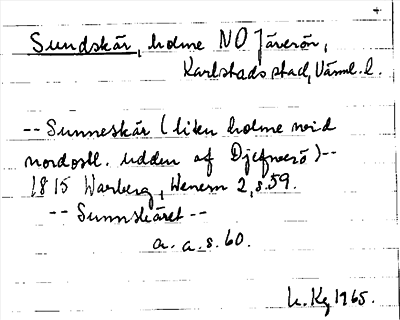 Sundskär, holme NO Jäverön,
Karlstads stad, Värml. l.
-- Sunneskär (liten holme wid
nordostl. udden af Djefverö) --
1815 Warberg, Wenern 2, s. 59.
-- Sunnskäret --
a. a. s. 60.
1965.